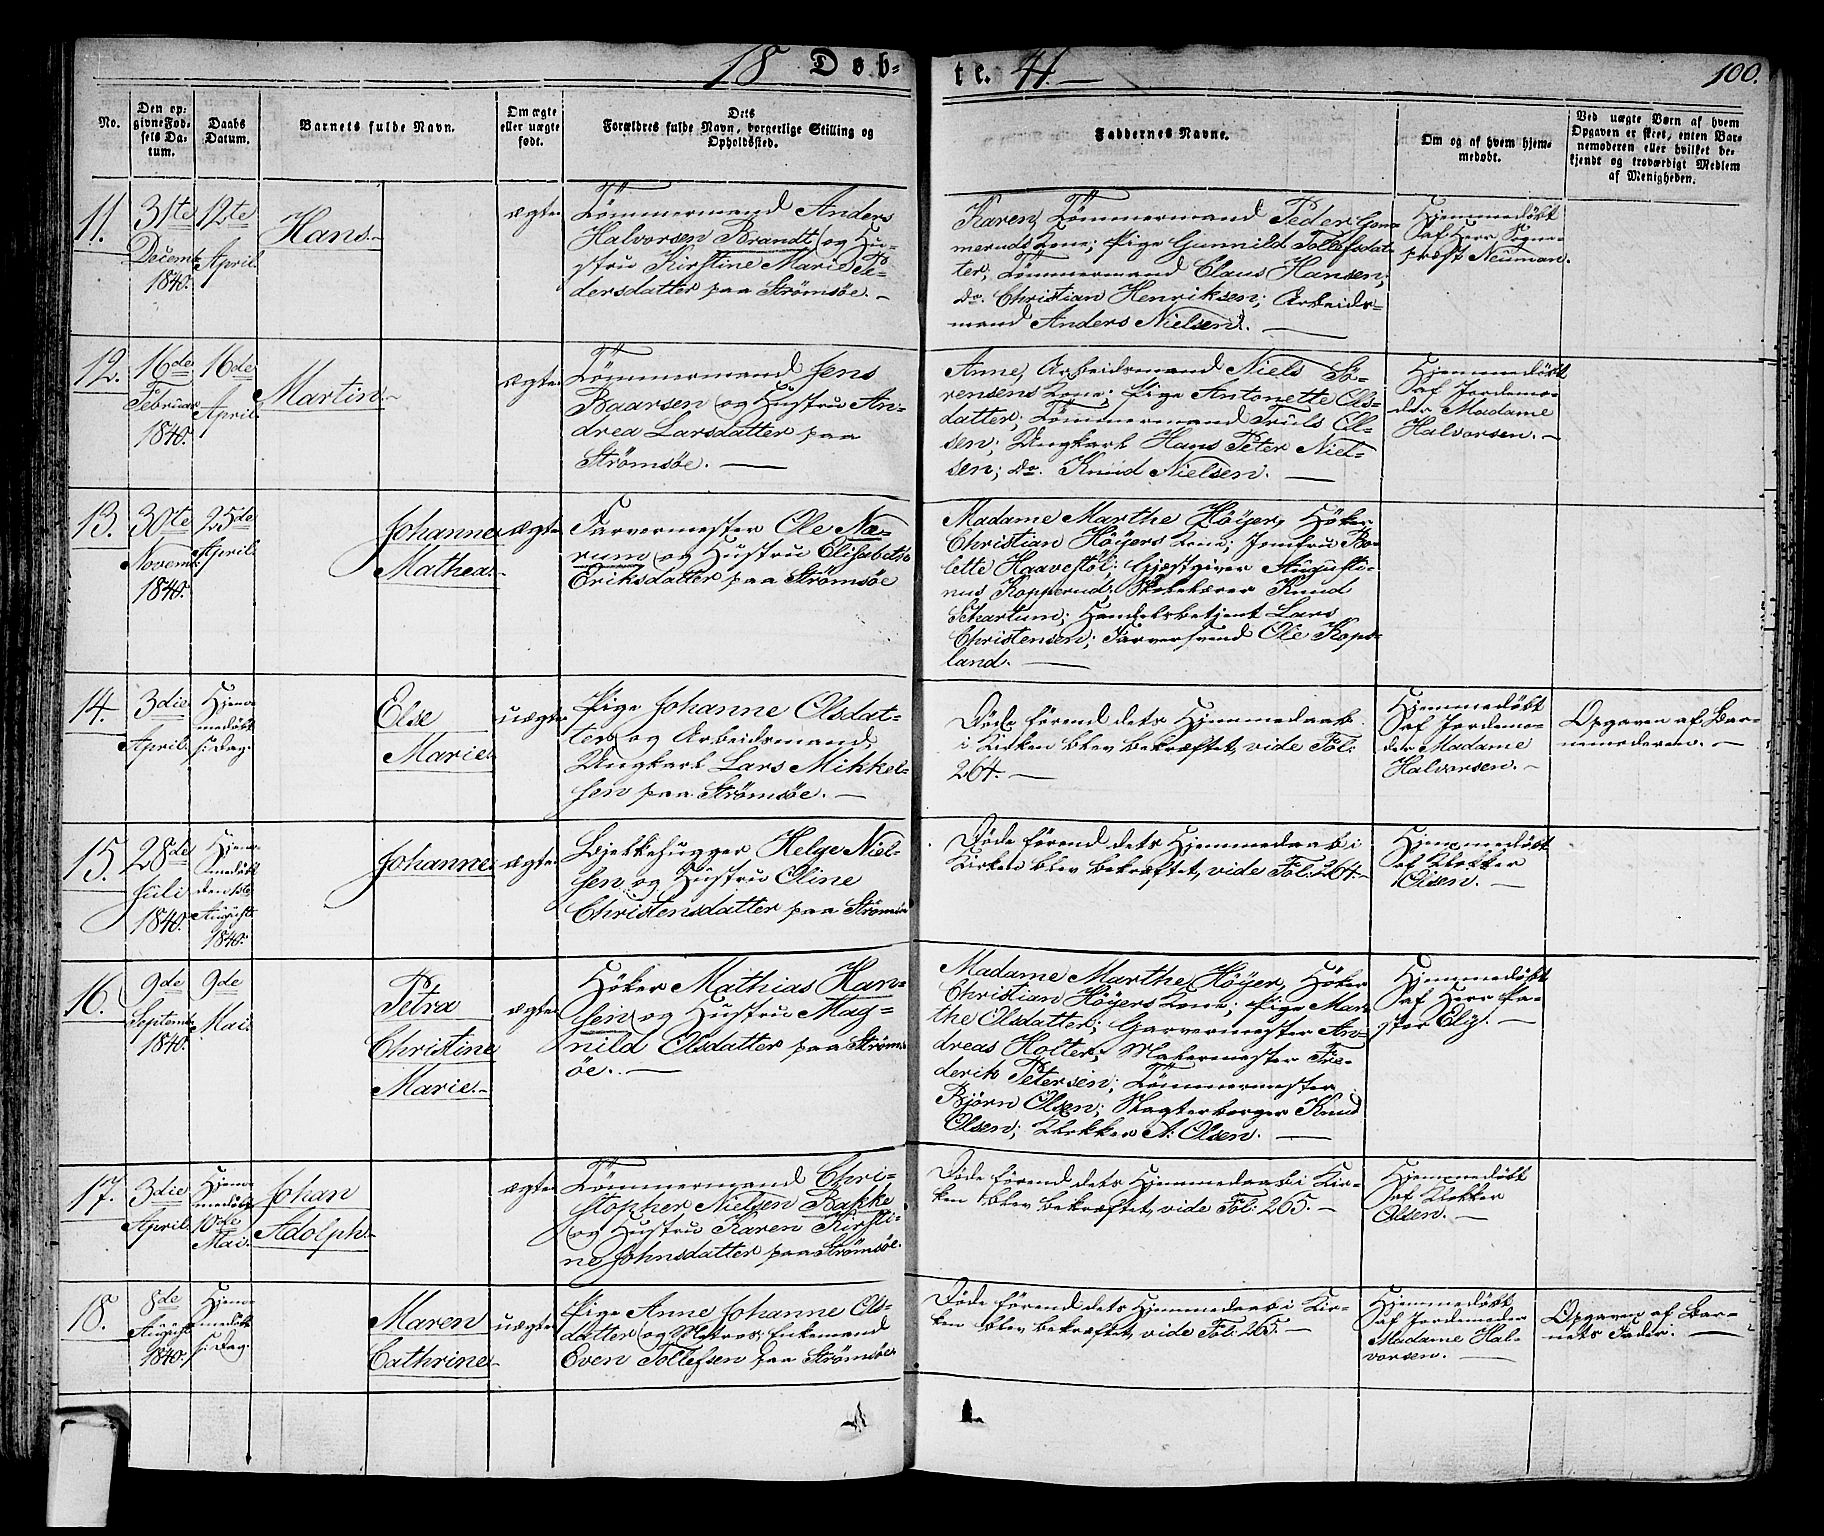 18 Døb-
te. 41.
100.
No.
Den op-
givne Fød-
sels Da-
tum.
Daabs
Datum.
Barnets fulde Navn.
Om ægte
eller uægte
født.
Dets
Forældres fulde Navn, borgerlige Stilling og
Opholdssted.
Faddernes Navne.
Om og af hvem hjem-
medøbt.
Ved uægte Børn af hvem
Opgaven er skeet, enten Bar-
nemoderen eller hvilket be-
kjendt og troværdigt Medlem
af Menigheden.
11.
31te
Decemb.
1840.
12te
April.
Hans.
ægte
Tömmermand Anders
Halvorsen Brandt og Hu-
stru Kirstine Marie Pe-
dersdatter paa Strömsöe.
Karen, Tömmermand Peder Gom-
meruds Kone; Pige Gunnild Tollefsdat-
ter; Tömmermand Claus Hansen;
do. Christian Henriksen; Arbeids-
mand Anders Nielsen.
Hjemmedöbt
af Herr Sogne-
præst Neuman.
12.
16de
Februar
1840.
16de
April
Martin.
ægte
Tömmermand Jens
Baarsen og Hustru An-
drea Larsdatter paa
Strömsöe.
Anne, Arbeidsmand Niels Sö-
rensens Kone; Pige Antonette Ols-
datter; Tömmermand Truls Ol-
sen; Ungkarl Hans Peter Niel-
sen; do. Knud Nielsen.
Hjemmedöbt
af Jordemo-
der Madame
Halvorsen.
13.
30te
Novemb.
1840.
25de
April.
Johanne
Mathea.
ægte
Farvermester Ole Næ-
rum og Hustru Elisabeth
Eriksdatter paa Strömsöe
Madame Marthe Höyer, Höker
Christian Höyers Kone; Jomfru Bo-
lette Haavestöl; Gjæstgiver Augusti-
nus Kopperud; Skibsfører Knud
Schartum; Handelsbetjent Lars
Christensen; Farversvend Ole Kops-
land.
14.
3die
April.
Hjem-
medöbt
s. Dag.
Else
Marie.
uægte
Pige Johanne Olsdat-
ter og Arbeidsmand,
Ungkarl Lars Mikkel-
sen paa Strömsöe.
Döde förend dets Hjemmedaab
i Kirken blev bekræftet, vide Fol:
264.
Hjemmedöbt
af Jordemo-
der Madame
Halvorsen.
Opgaven af Bar-
nemoderen.
15.
28de
Juli
1840.
Hjem-
medöbt
den 1ste
August
1840.
Johanne
ægte
Bjelkehugger Helge Niel-
sen og Hustru Oline
Christensdatter paa Strömsöe
Döde förend dets Hjemmedaab i
Kirken blev bekræftet, vide Fol: 264.
Hjemmedöbt
af Klokker
Olsen.
16.
9de
Septemb.
1840.
9de
Mai.
Petra
Christine
Marie.
ægte
Höker Mathias Han-
sen og Hustru Mag-
nild Olsdatter paa Ströms-
öe.
Madame Marthe Höyer, Höker
Christian Höyers Kone; Pige Mar-
the Olsdatter; Garvermester An-
dreas Holter; Malermester Fre-
derik Petersen; Tömmermester
Björn Olsen; Slagterborger Knud
Olsen; Klokker A: Olsen.
Hjemmedöbt
af Herr Pa-
stor Ely.
17.
3die
April.
Hjem-
medöbt
10de
Mai.
Johan
Adolph.
ægte
Tömmermand Chri-
stopher Nielsen Bakke
og Hustru Karen Kirsti-
ne Johnsdatter paa Strömsöe.
Döde förend dets Hjemmedaab i Kir-
ken blev bekræftet, vide Fol: 265.
Hjemmedöbt
af Klokker
Olsen.
18.
8de
August
1840.
Hjem-
medöbt
s. Dag.
Maren
Cathrine.
uægte
Pige Anne Johanne Ols-
datter og Matros Enkemand
Even Tollefsen paa Strömsöe
Döde förend dets Hjemmedaab i Kir-
ken blev bekræftet, vide Fol: 265.
Hjemmedöbt
af Jordemoder
Madame Hal-
vorsen.
Opgaven af Bar-
nets Fader.